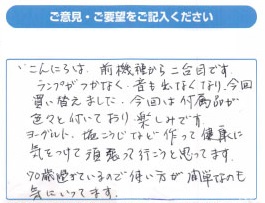 ご意見・ご要望をご記入ください
こんにちは、前機種から二台目です。
ランプがつかなく、音も出なくなり、今回
買い替えました。今回は付属品が
色々と付いており楽しみです。
ヨーグルト、塩こうじなど作って健康に
気をつけて頑張って行こうと思ってます。
70歳過ぎているので使い方が簡単なのも
気にいってます。